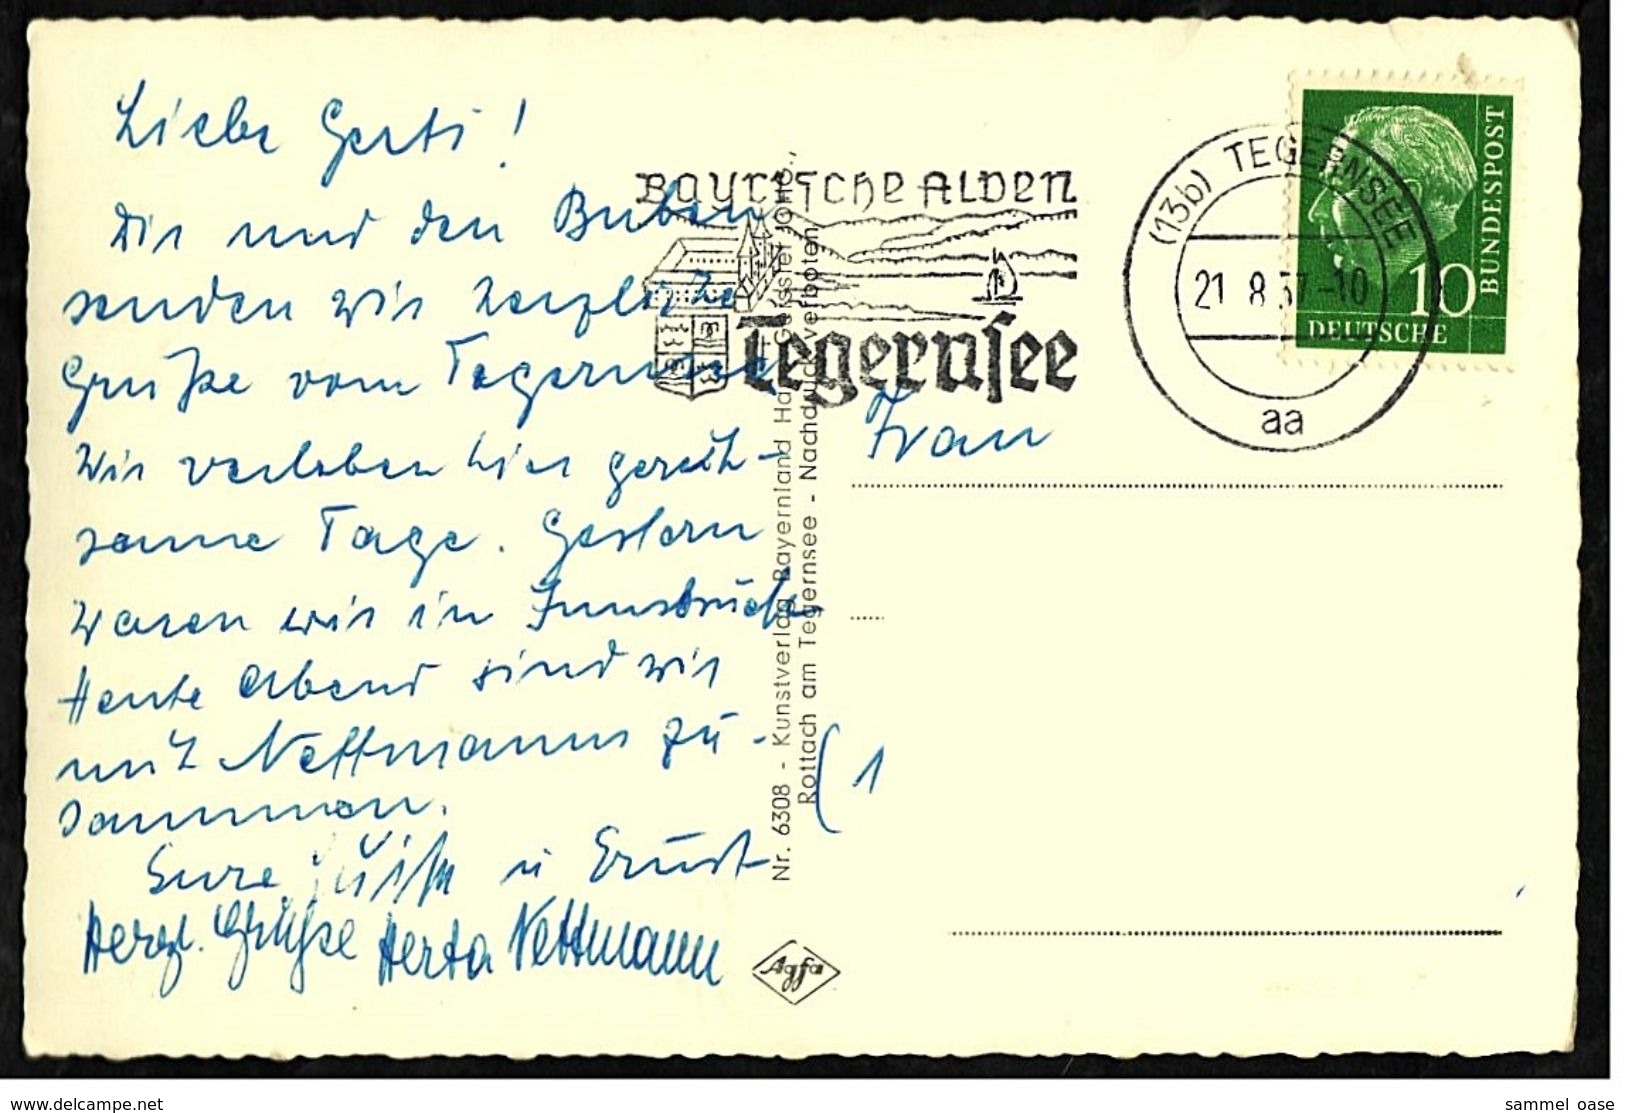 Liebe Gerti!
Dir und den Buben
senden wir herzliche
Grüße vom Tegernsee
Wir verleben hier geruh-
same Tage. Gestern
waren wir in Innsbruck
Heute Abend sind wir
mit Nettmanns zu-
sammen.
Eure u Ernst
Herzl. Grüße Herta Nettmann
Bayrische Alpen
Tegernsee
(13b) TEGERNSEE
21 8.57-10
aa
10
DEUTSCHE
BUNDESPOST
Frau
(1
Nr. 6308 - Kunstverlag Bayernland
Rottach am Tegernsee - Nachdruck verboten
Agfa
www.delcampe.net
sammel_oase